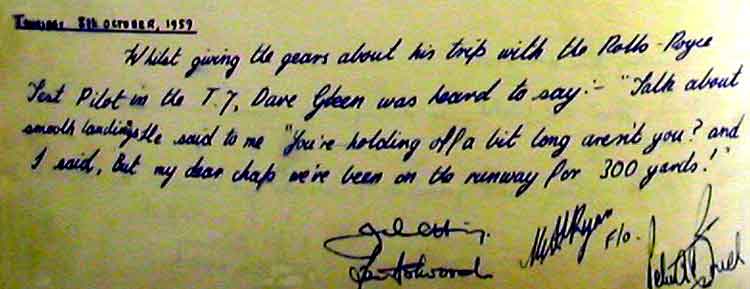 Thursday 8th October, 1959
Whilst giving the gears about his trip with the Rolls-Royce
Test Pilot in the T.7, Dave Green was heard to say:- "Talk about
smooth landings He said to me "You're holding off a bit long aren't you? and
I said, But my dear chap we've been on the runway for 300 yards!"
Ryan F/O.